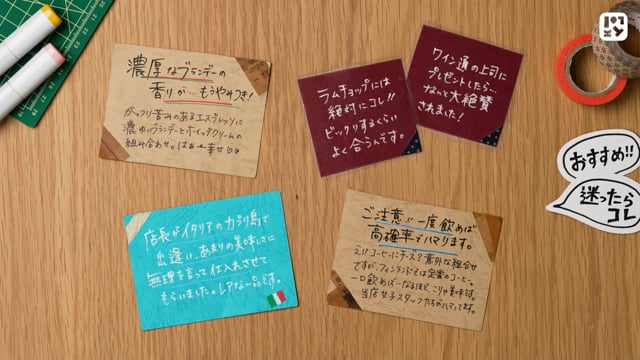 濃厚なブランデーの
香りが…もうやみつき!
ガッツリ苦みのあるエスプレッソに
濃ゆいブランデーとホイップクリームの
組み合わせ。はぁ〜幸せ
ラムチョップには
絶対にコレ!!
ビックリするくらい
よく合うんです。
ワイン通の上司に
プレゼントしたら…
なんと大絶賛
されました!
おすすめ!!
迷ったら
コレ
店長がイタリアのカプリ島で
出逢い、あまりの美味しさに
無理を言って仕入れさせて
もらいました。レアな一品です。
ご注意!!一度飲めば
高確率でハマります。
え!?コーヒーにチーズ?意外な組合せ
ですが、フィンランドでは定番のコーヒー。
一口飲めばーなるほど、こりゃ美味です。
当店女子スタッフたちがハマってます。